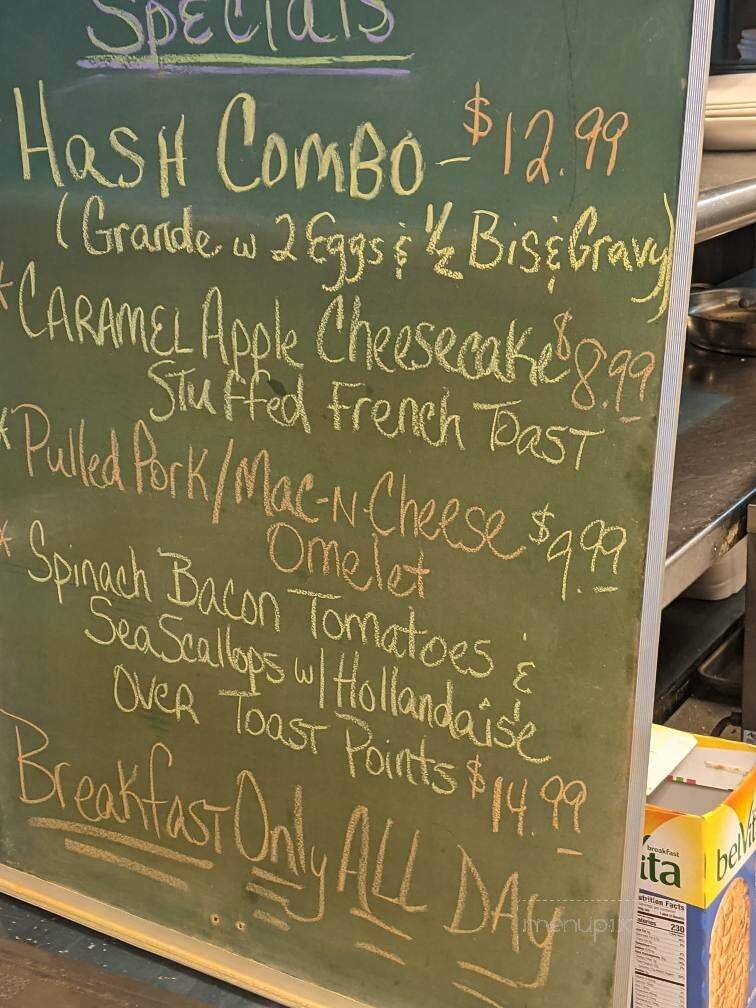 Specials
Hash Combo - $12.99
(Grande w 2 Eggs & 1/2 Bis & Gravy)
* Caramel Apple Cheesecake $8.99
Stuffed French Toast
* Pulled Pork/Mac-N-Cheese $9.99
Omelet
* Spinach Bacon Tomatoes &
Sea Scallops w/ Hollandaise
Over Toast Points $14.99
Breakfast Only ALL DAy
menupix
breakfast
ita
belvita
Nutrition Facts
Calories 230